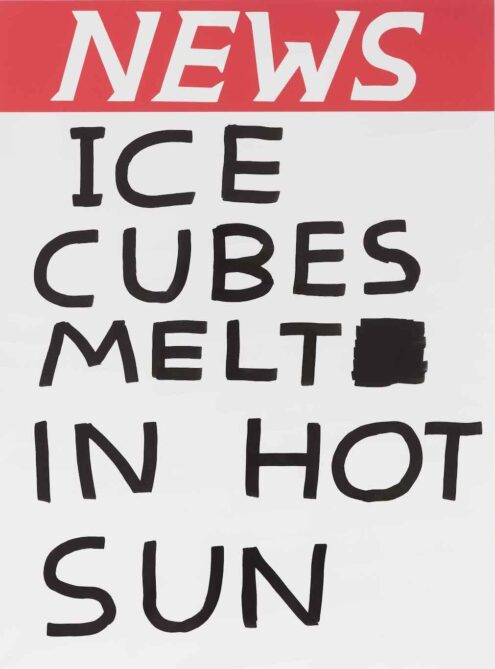 NEWS
ICE
CUBES
MELT
IN HOT
SUN